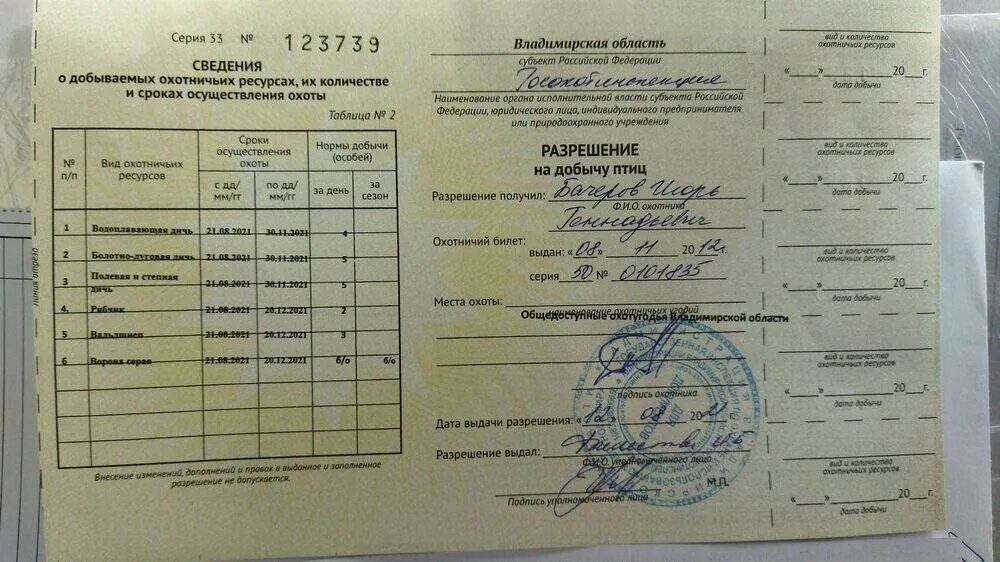 Серия 33 № 123739
СВЕДЕНИЯ
о добываемых охотничьих ресурсах, их количестве
и сроках осуществления охоты
Таблица № 2
№ п/п
Вид охотничьих ресурсов
Сроки осуществления охоты
Нормы добычи (особей)
с дд/мм/гг
по дд/мм/гг
за день
за сезон
1 Водоплавающая дичь 21.08.2021 30.11.2021 4
2 Болотно-луговая дичь 21.08.2021 30.11.2021 5
3 Полевая и степная дичь 21.08.2021 30.11.2021 5
4. Рябчик 21.08.2021 20.12.2021 2
5 Вальдшнеп 21.08.2021 20.12.2021 3
6 Ворона серая 21.08.2021 20.12.2021 б/о б/о
Внесение изменений, дополнений и правок в выданное и заполненное
разрешение не допускается.
Линия отреза
Владимирская область
субъект Российской Федерации
Госохотинспекция
Наименование органа исполнительной власти субъекта Российской
Федерации, юридического лица, индивидуального предпринимателя
или природоохранного учреждения
РАЗРЕШЕНИЕ
на добычу птиц
Разрешение получил: Бачеров Игорь
Ф.И.О. охотника
Геннадьевич
Охотничий билет:
выдан: «08» 11 2012г.
серия 50 № 0101835
Места охоты:
наименование охотничьих угодий
Общедоступные охотугодья Владимирской области
подпись охотника
Дата выдачи разрешения: «12» 08 21
Разрешение выдал:
Ф.И.О. уполномоченного лица
М.П.
Подпись уполномоченного лица
вид и количество
охотничьих ресурсов
«___» ______ 20__г.
дата добычи
вид и количество
охотничьих ресурсов
«___» ______ 20__г.
дата добычи
вид и количество
охотничьих ресурсов
«___» ______ 20__г.
дата добычи
вид и количество
охотничьих ресурсов
«___» ______ 20__г.
дата добычи
вид и количество
охотничьих ресурсов
«___» ______ 20__г.
дата добычи